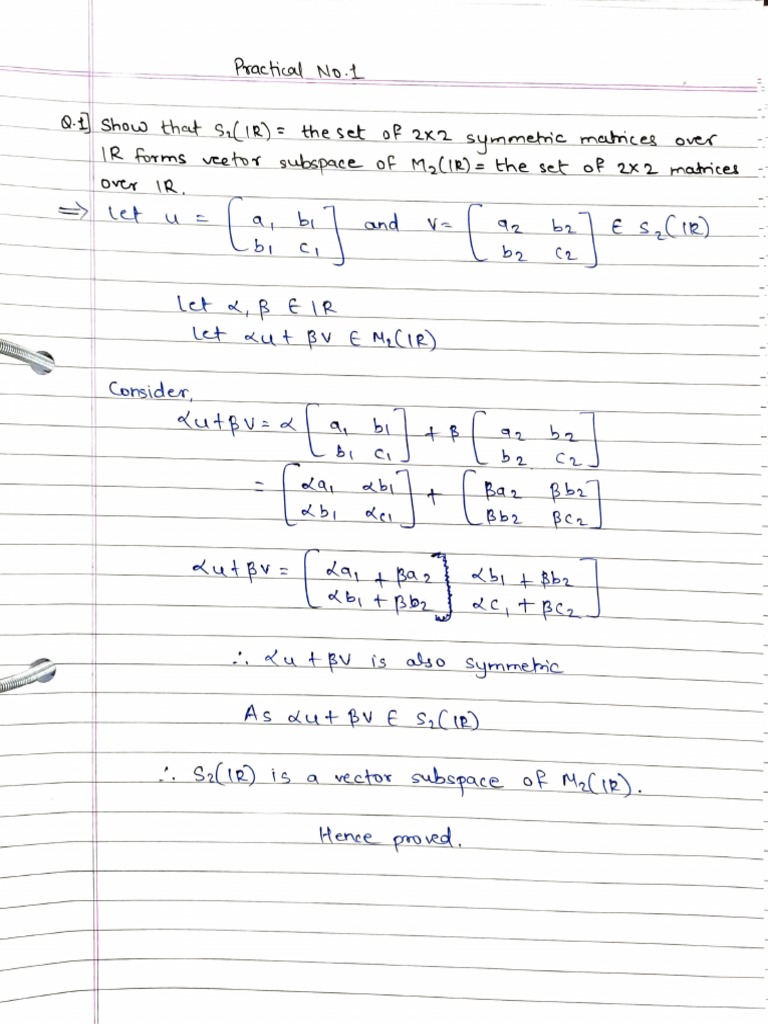 Practical No.1
Q.1] Show that S₂(IR) = the set of 2x2 symmetric matrices over
IR forms vector subspace of M₂(IR) = the set of 2x2 matrices
over IR.
⇒ let u = [a₁ b₁ and v = [a₂ b₂ ∈ S₂(IR)
b₁ c₁] b₂ c₂]
Let α, β ∈ IR
Let αu + βv ∈ M₂(IR)
Consider,
αu+βv = α [a₁ b₁ + β [a₂ b₂
b₁ c₁] b₂ c₂]
= [αa₁ αb₁ + [βa₂ βb₂
αb₁ αc₁] βb₂ βc₂]
αu+βv = [αa₁ + βa₂ αb₁ + βb₂
αb₁ + βb₂ αc₁ + βc₂]
∴ αu + βv is also symmetric
As αu + βv ∈ S₂(IR)
∴ S₂(IR) is a vector subspace of M₂(IR).
Hence proved.